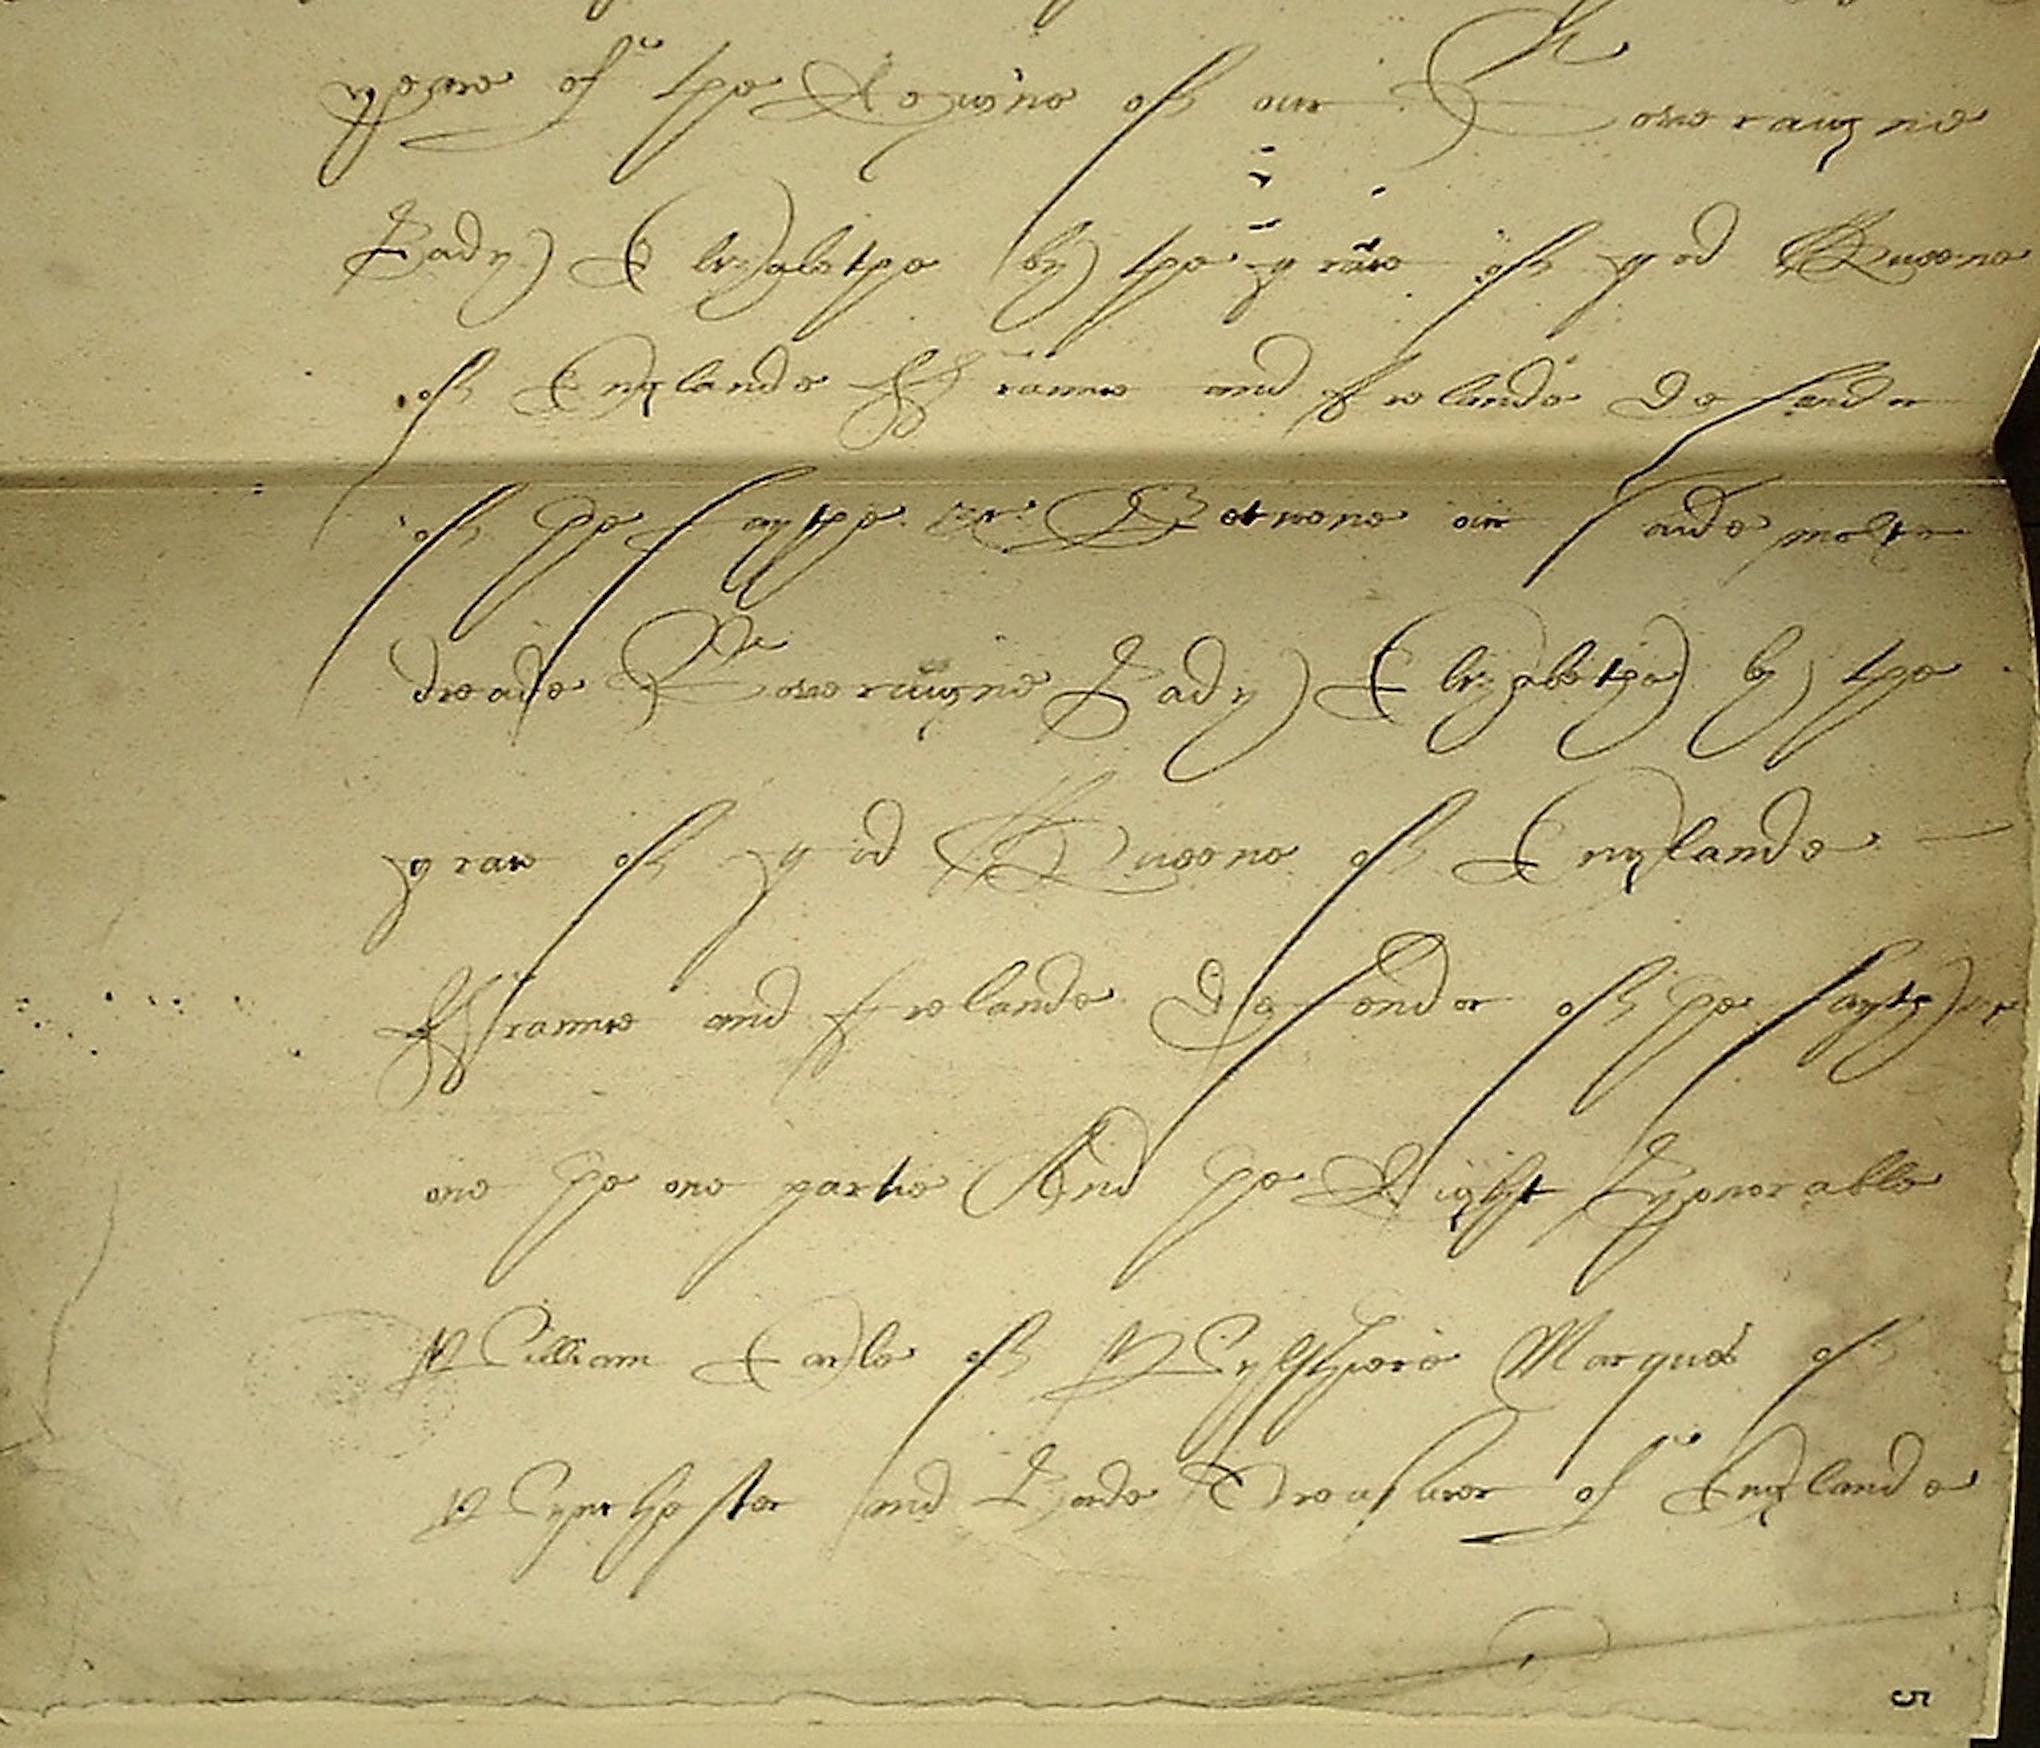 yeare of the Reigne of our Soveraigne
Lady Elizabethe by the grace of god Queene
of Englande Ffraunce and Irelande Defender
of the faythe &c Betwene our saide moste
dreade Soveraigne Lady Elizabethe by the
grace of god Queene of Englande
Ffraunce and Irelande Defender of the fayth &c
one the one partie And the Right Hynorable
William Earle of Wylsshiere Marques of
Wynchester and Lorde Treasurer of Englande
5